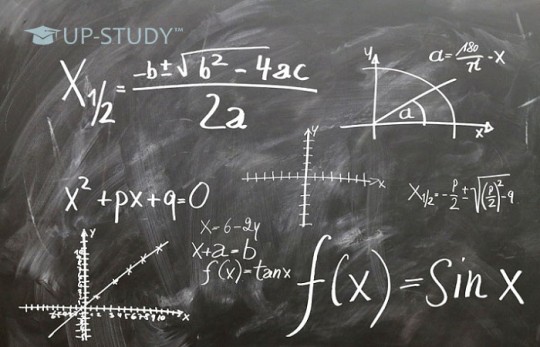 UP-STUDY™
X₁/₂ = (-b ± √(b² - 4ac)) / 2a
y
a = 180/π · x
a
x
y
x
x² + px + q = 0
X₁/₂ = -p/2 ± √((p/2)² - q)
x = 6 - 2y
x + a = b
f(x) = tan x
f(x) = Sin x
y
x